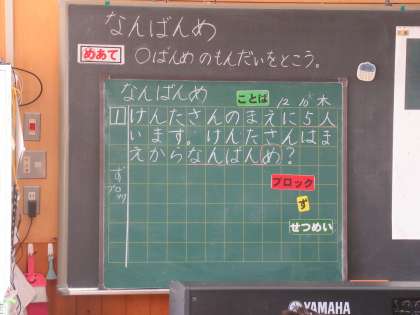 なんばんめ
めあて ○ばんめのもんだいをとこう。
なんばんめ ことば 12/10 木
1 けんたさんのまえに5人
います。けんたさんはま
えからなんばんめ?
ず
ブロック
ブロック
ず
せつめい
YAMAHA